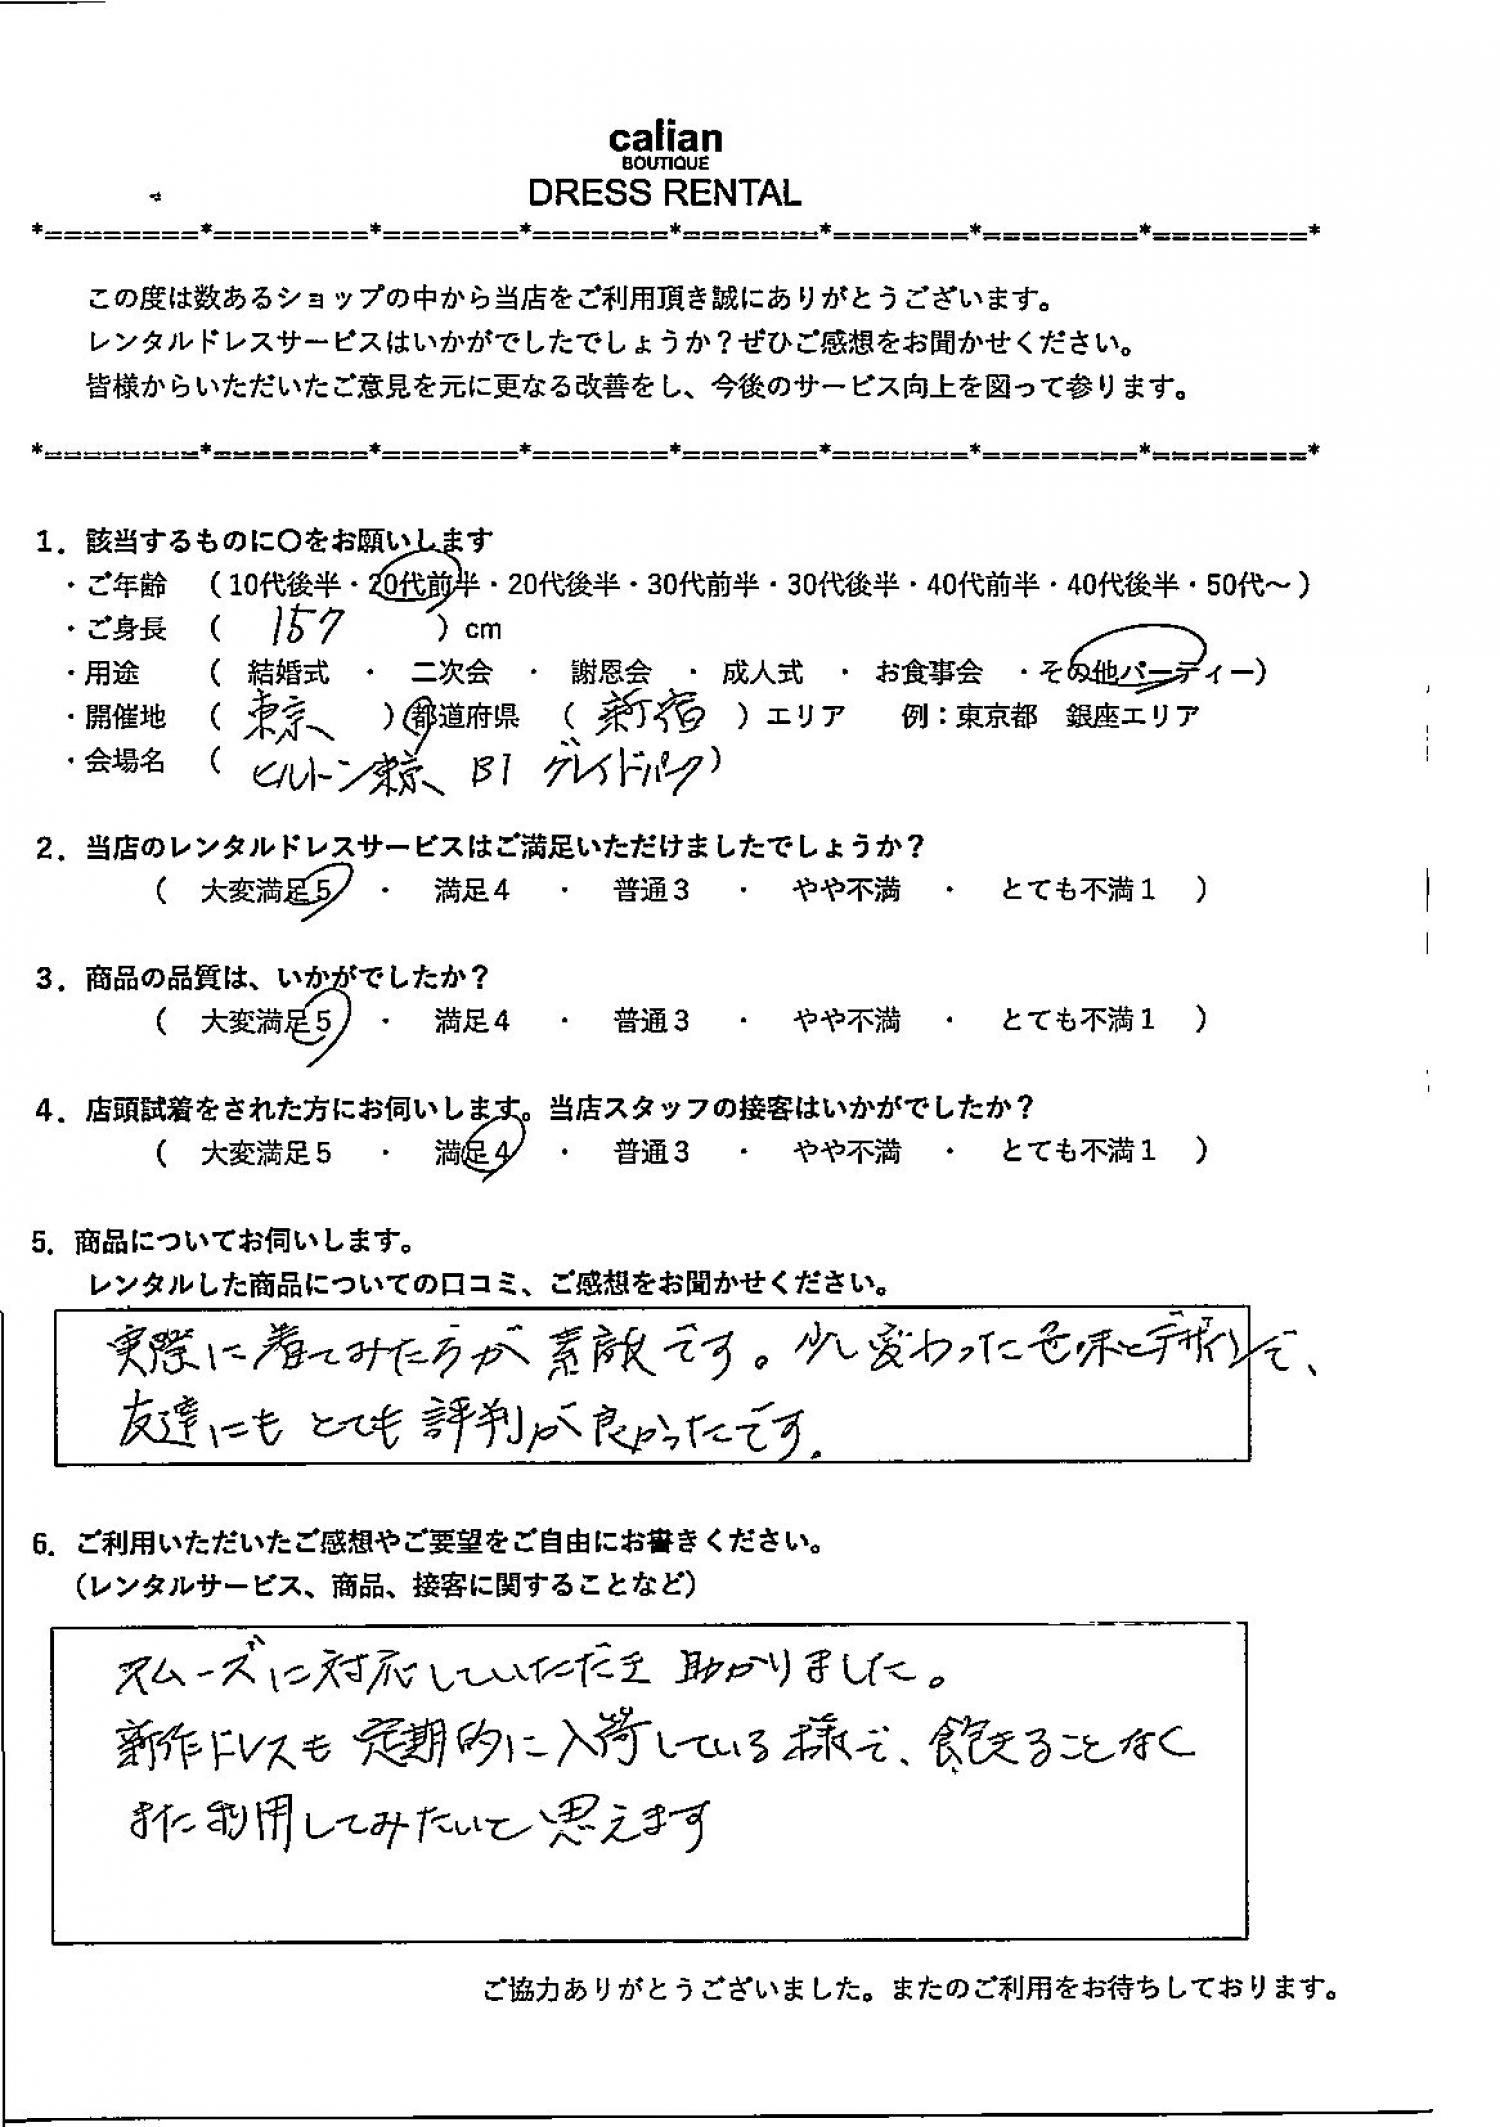 calian
BOUTIQUE
DRESS RENTAL
*=========*=========*========*========*========*========*=========*=========*
この度は数あるショップの中から当店をご利用頂き誠にありがとうございます。
レンタルドレスサービスはいかがでしたでしょうか？ぜひご感想をお聞かせください。
皆様からいただいたご意見を元に更なる改善をし、今後のサービス向上を図って参ります。
*=========*=========*========*========*========*========*=========*=========*
1．該当するものに〇をお願いします
・ご年齢 （10代後半・20代前半・20代後半・30代前半・30代後半・40代前半・40代後半・50代～）
・ご身長 （ 157 ）cm
・用途 （ 結婚式 ・ 二次会 ・ 謝恩会 ・ 成人式 ・ お食事会 ・その他パーティー）
・開催地 （ 東京 ）都道府県 （ 新宿 ）エリア 例：東京都 銀座エリア
・会場名 （ ヒルトン東京 B1 グレイドパーク）
2．当店のレンタルドレスサービスはご満足いただけましたでしょうか？
（ 大変満足5 ・ 満足4 ・ 普通3 ・ やや不満 ・ とても不満1 ）
3．商品の品質は、いかがでしたか？
（ 大変満足5 ・ 満足4 ・ 普通3 ・ やや不満 ・ とても不満1 ）
4．店頭試着をされた方にお伺いします。当店スタッフの接客はいかがでしたか？
（ 大変満足5 ・ 満足4 ・ 普通3 ・ やや不満 ・ とても不満1 ）
5．商品についてお伺いします。
レンタルした商品についての口コミ、ご感想をお聞かせください。
実際に着てみた方が素敵です。少し変わった色味とデザインで、
友達にもとても評判が良かったです。
6．ご利用いただいたご感想やご要望をご自由にお書きください。
（レンタルサービス、商品、接客に関することなど）
スムーズに対応していただき助かりました。
新作ドレスも定期的に入荷している様で、飽きることなく
また利用してみたいと思えます
ご協力ありがとうございました。またのご利用をお待ちしております。